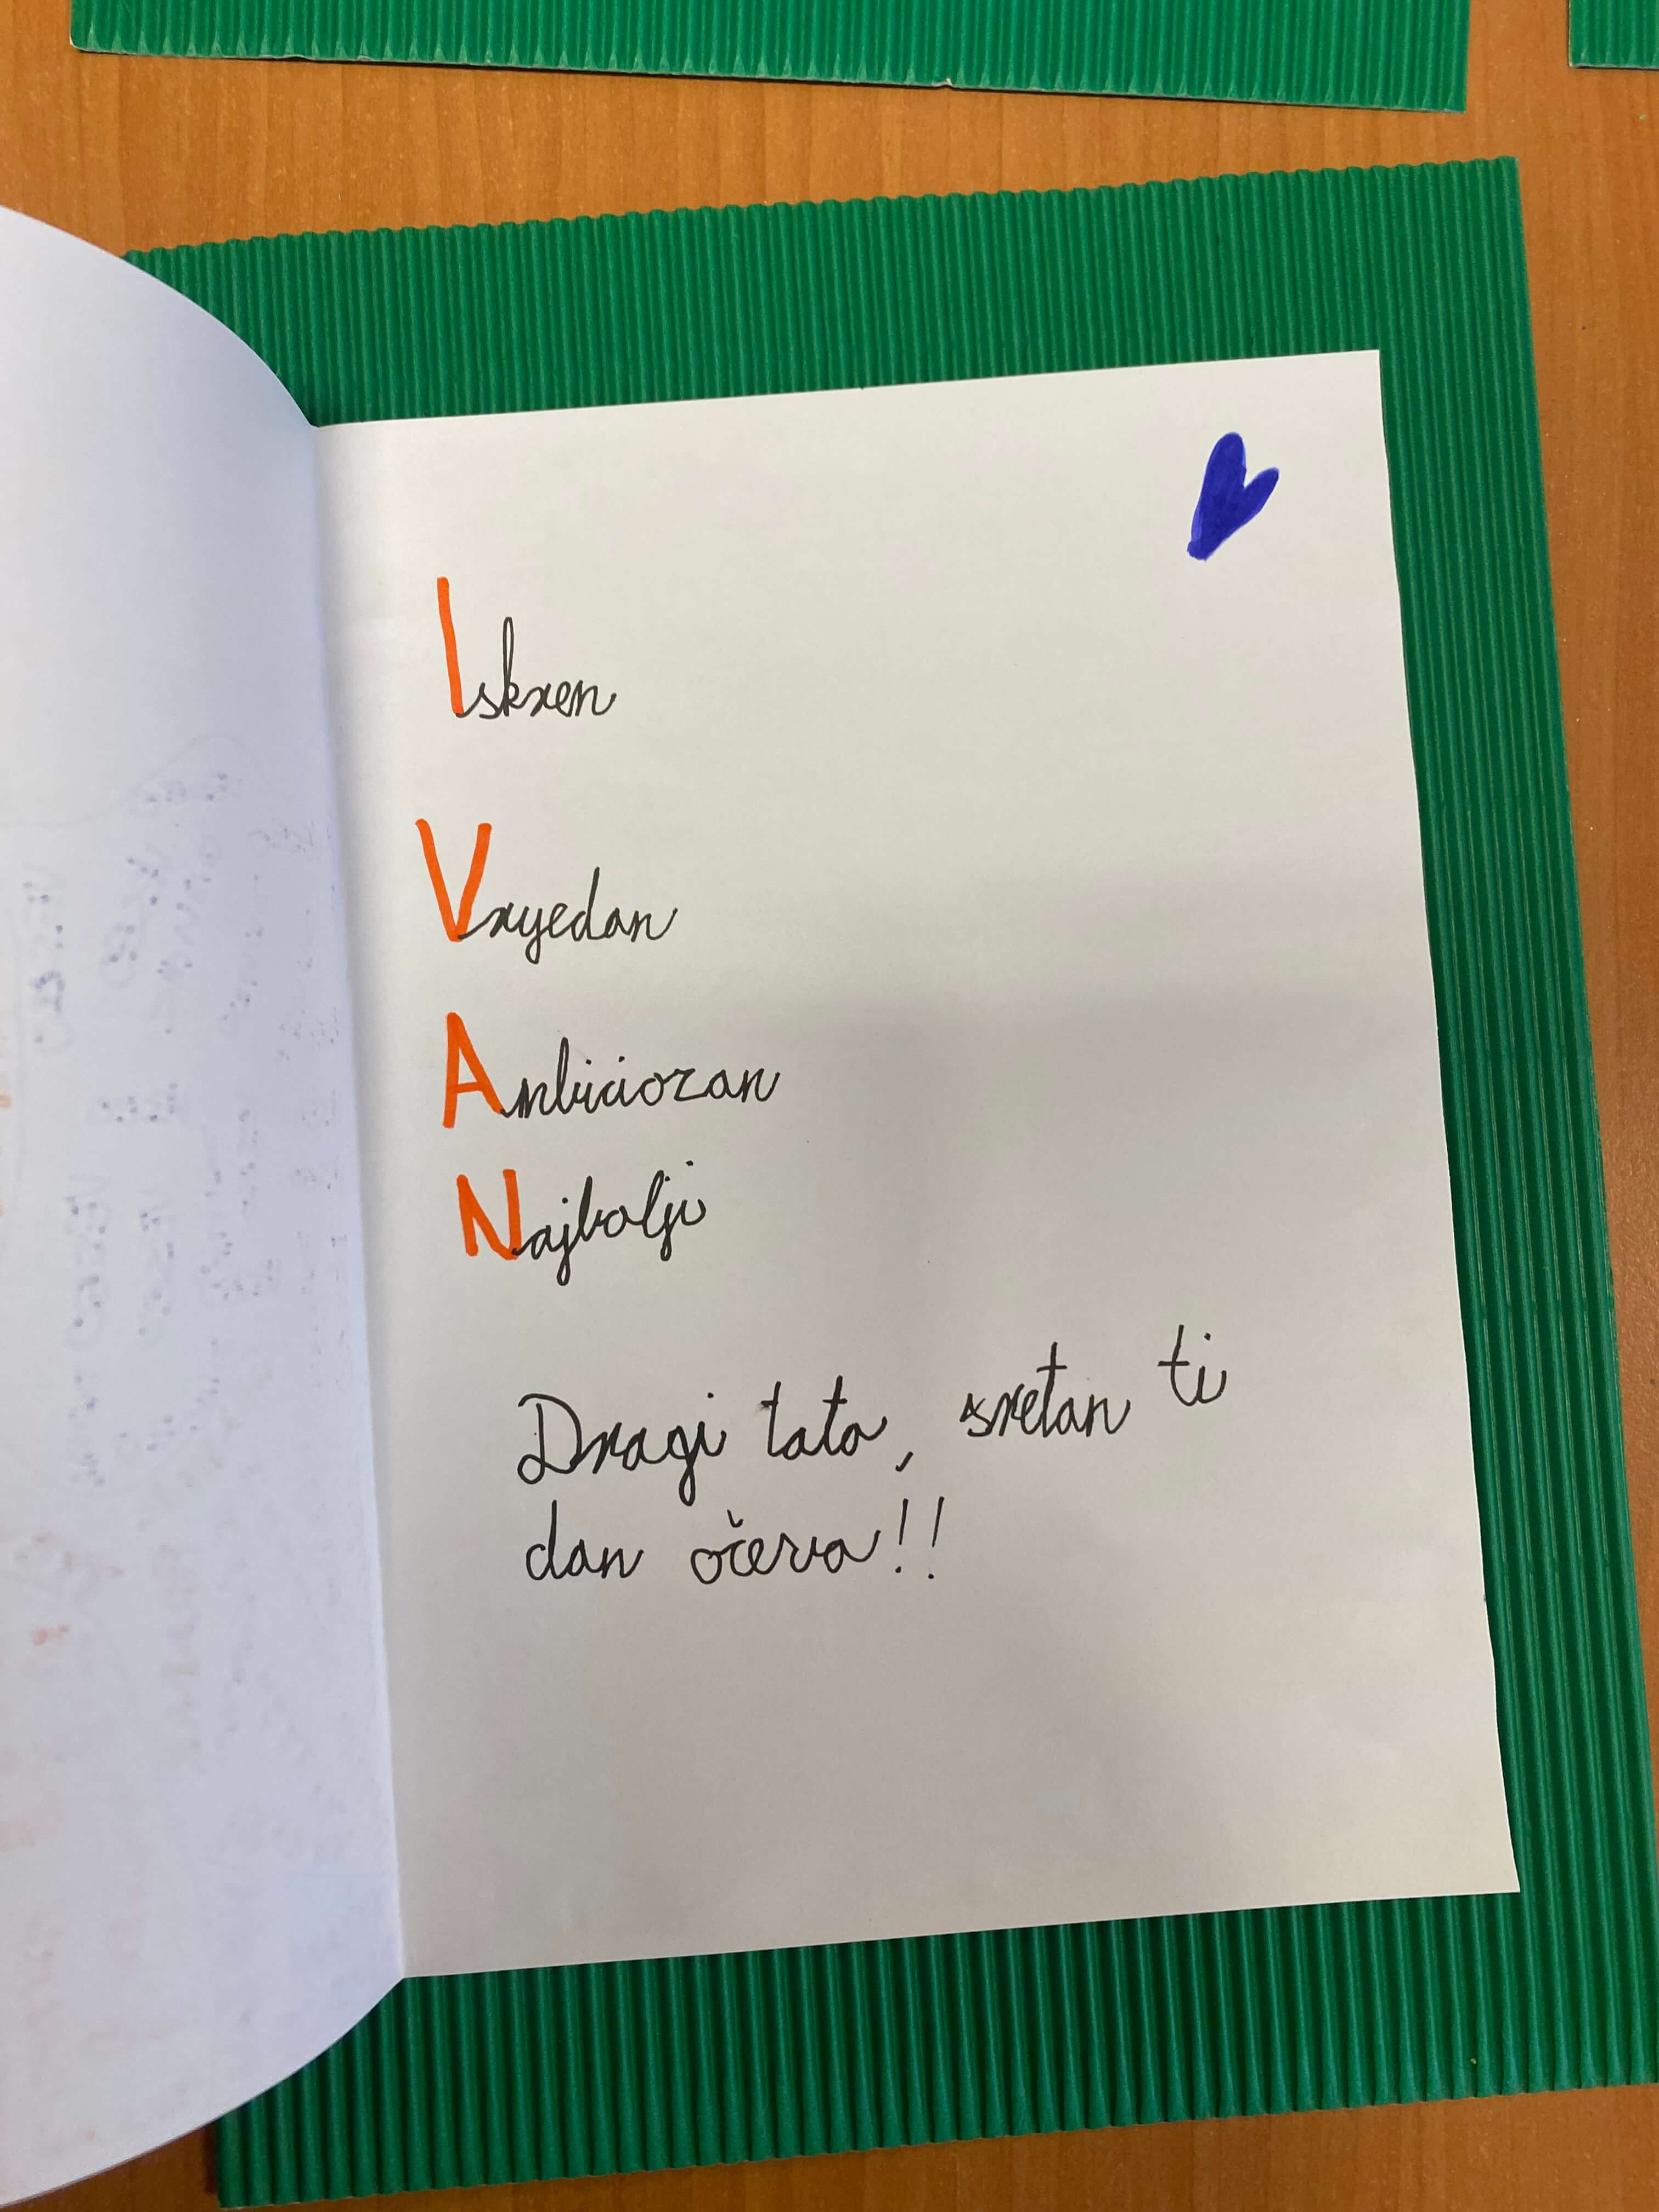 Iskren
Vrijedan
Ambiciozan
Najbolji
Dragi tata, sretan ti
dan očeva!!